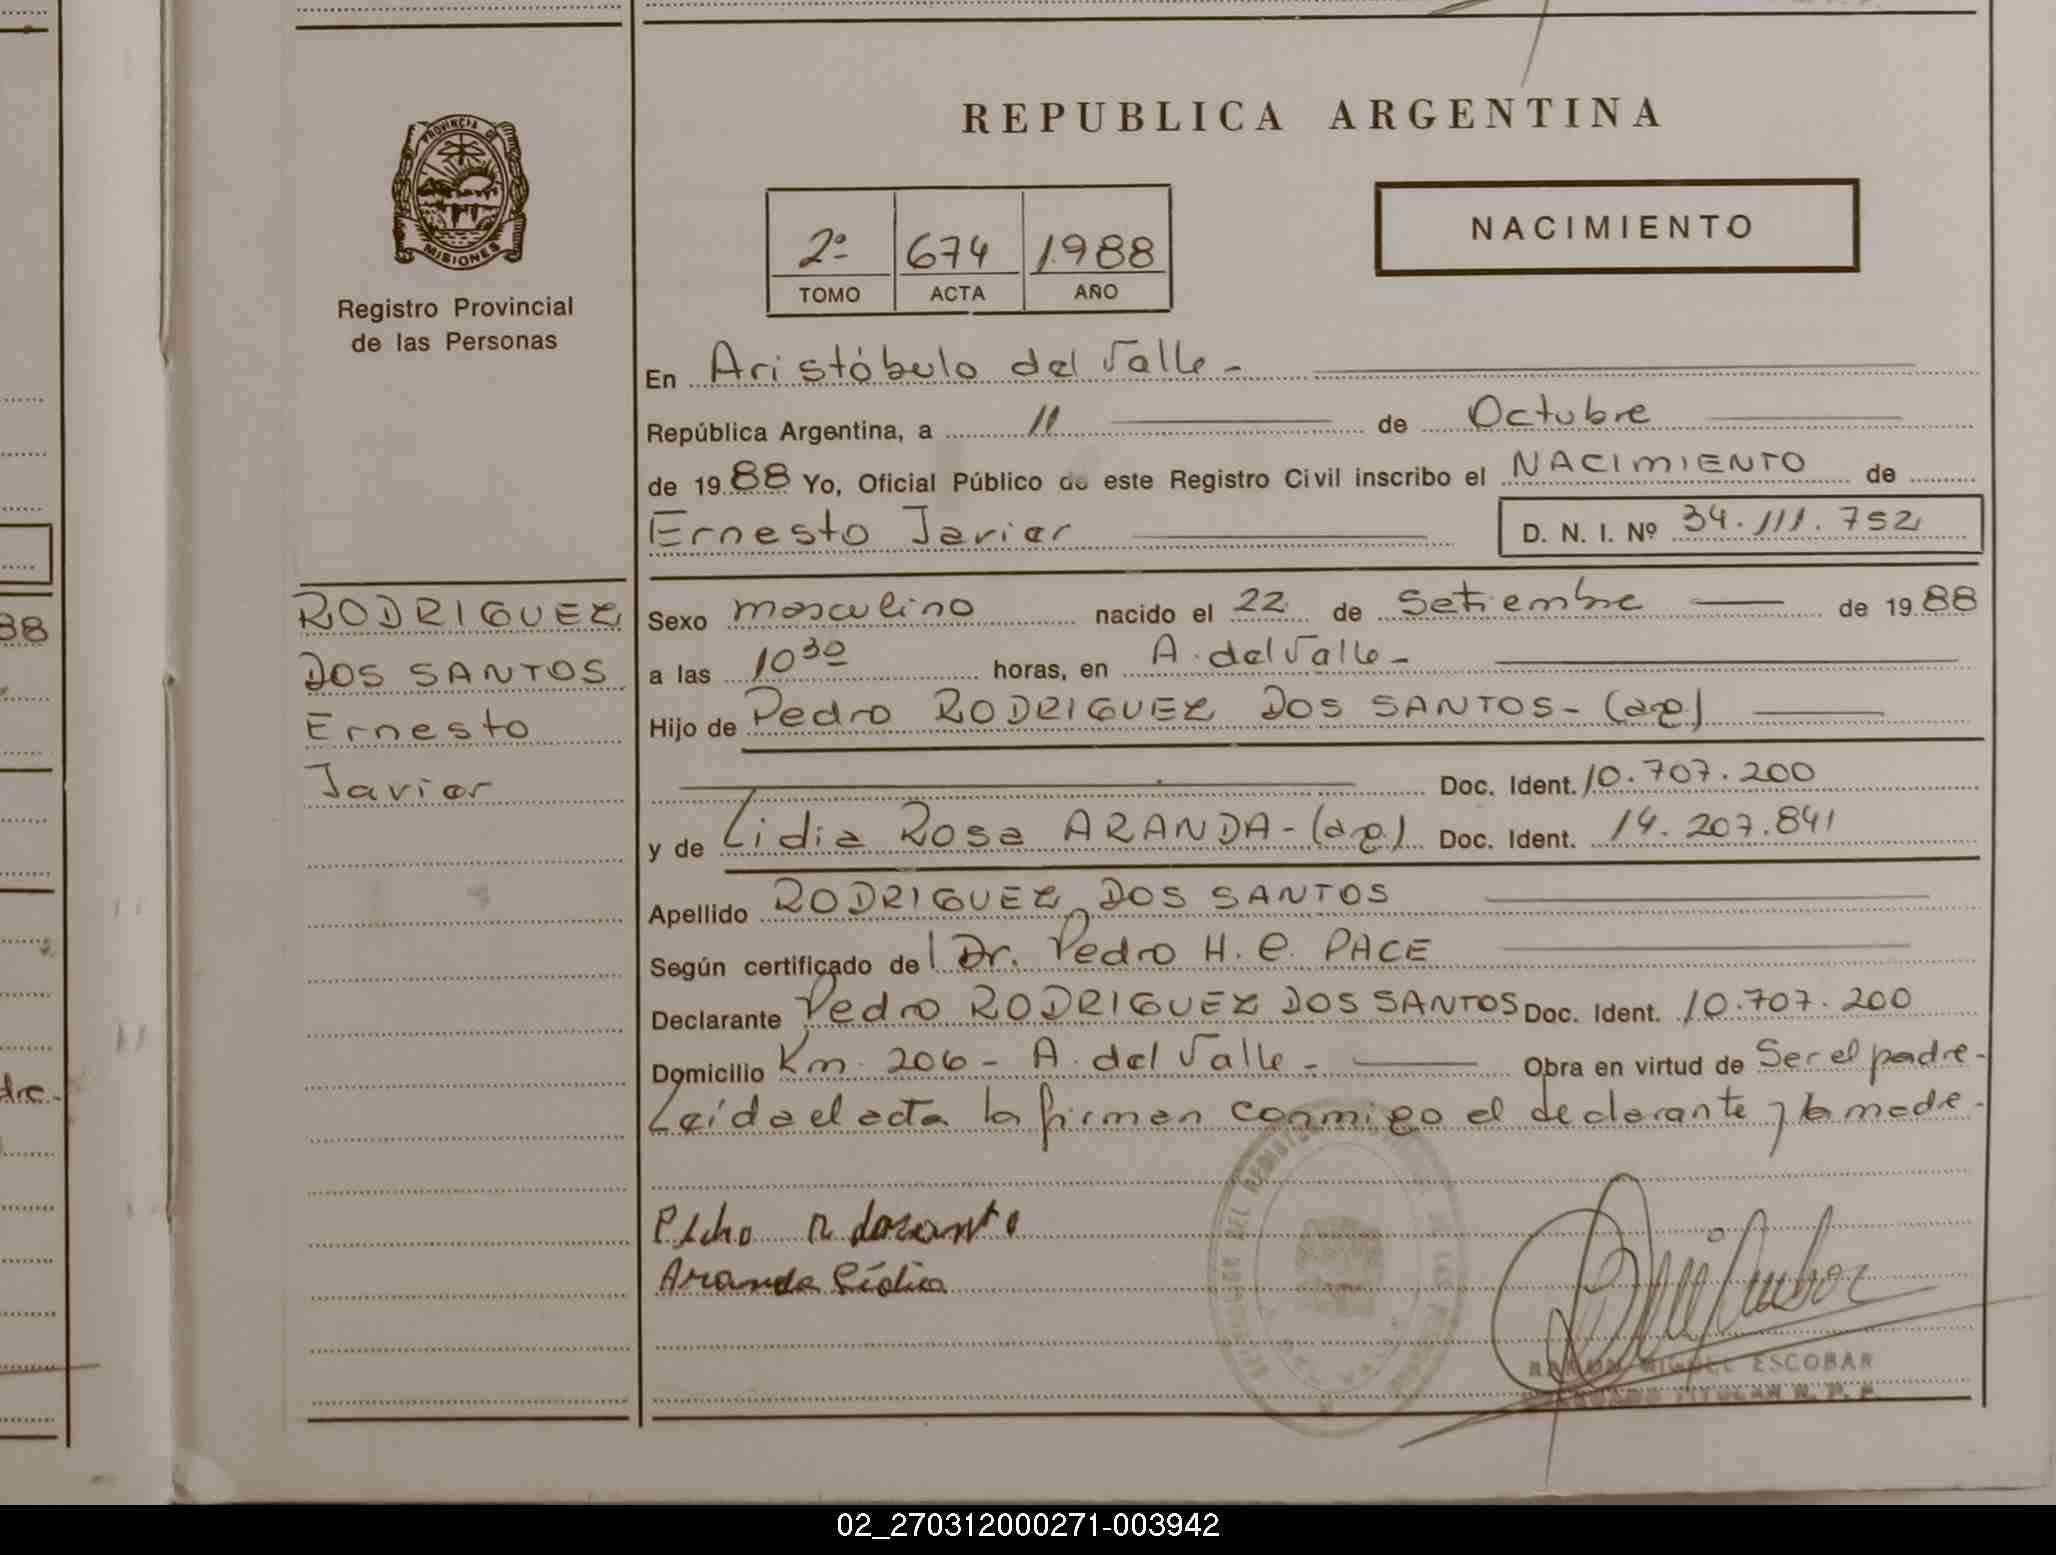 REPUBLICA ARGENTINA
PROVINCIA DE
MISIONES
Registro Provincial
de las Personas
2º 674 1.988
TOMO ACTA AÑO
NACIMIENTO
En Aristóbulo del Valle -
República Argentina, a 11 de Octubre
de 1988 Yo, Oficial Público de este Registro Civil inscribo el NACIMIENTO de
Ernesto Javier D. N. I. Nº 34.111.752
RODRIGUEZ
DOS SANTOS
Ernesto
Javier
Sexo masculino nacido el 22 de Setiembre de 1988
a las 10 30 horas, en A. del Valle -
Hijo de Pedro RODRIGUEZ DOS SANTOS - (arg)
Doc. Ident. 10.707.200
y de Lidia Rosa ARANDA - (arg) Doc. Ident. 14.207.841
Apellido RODRIGUEZ DOS SANTOS
Según certificado del Dr. Pedro H. C. PACE
Declarante Pedro RODRIGUEZ DOS SANTOS Doc. Ident. 10.707.200
Domicilio Km. 206 - A. del Valle - Obra en virtud de Ser el padre -
Leída el acta la firman conmigo el declarante y la madre -
Aranda Lidia
RAMON MIGUEL ESCOBAR
88
dre.-
02_270312000271-003942